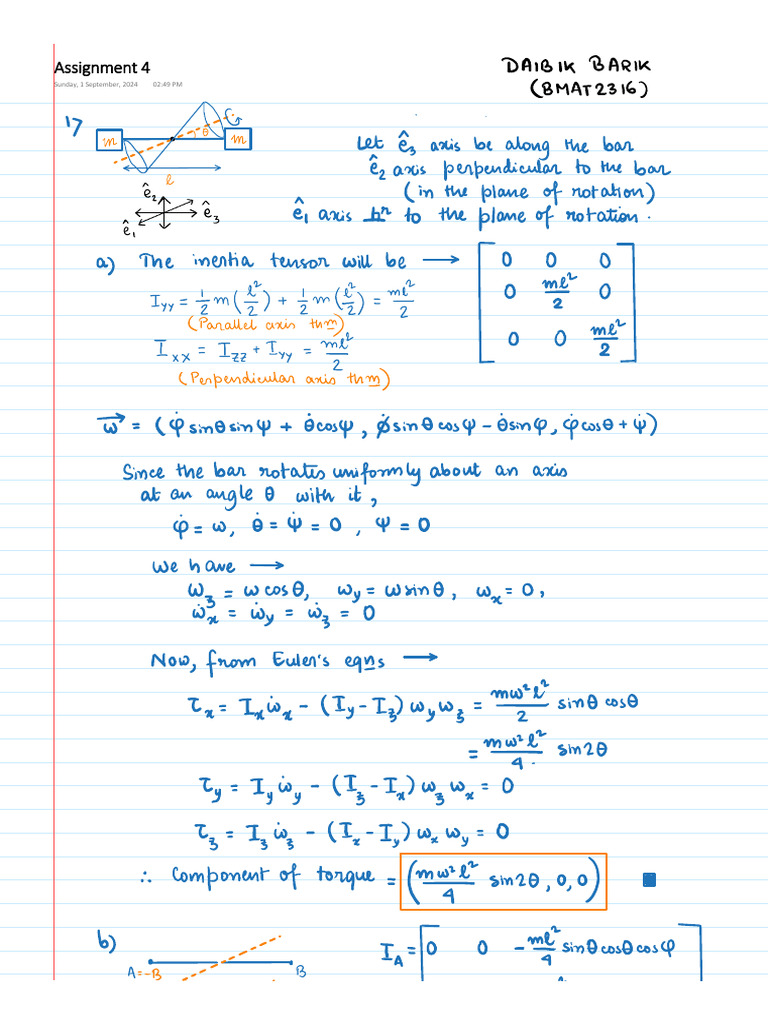 Assignment 4
Sunday, 1 September, 2024 02:49 PM
DAIBIK BARIK
(BMAT2316)
1)
m θ m
l
ê₂
ê₃
ê₁
Let ê₃ axis be along the bar
ê₂ axis perpendicular to the bar
(in the plane of rotation)
ê₁ axis ⊥ʳ to the plane of rotation.
a) The inertia tensor will be ⟶ [0 0 0
0 ml²/2 0
0 0 ml²/2]
I_yy = 1/2 m(l²/2) + 1/2 m(l²/2) = ml²/2
(Parallel axis thm)
I_xx = I_zz + I_yy = ml²/2
(Perpendicular axis thm)
ω⃗ = (φ̇ sinθ sinψ + θ̇ cosψ, φ̇ sinθ cosψ - θ̇ sinφ, φ̇ cosθ + ψ̇)
Since the bar rotates uniformly about an axis
at an angle θ with it,
φ̇ = ω, θ̇ = ψ̇ = 0, ψ = 0
We have ⟶
ω_z = ω cosθ, ω_y = ω sinθ, ω_x = 0,
ω̇_x = ω̇_y = ω̇_z = 0
Now, from Euler's eqns ⟶
τ_x = I_x ω̇_x - (I_y - I_z) ω_y ω_z = mω²l²/2 sinθ cosθ
= mω²l²/4 sin2θ
τ_y = I_y ω̇_y - (I_z - I_x) ω_z ω_x = 0
τ_z = I_z ω̇_z - (I_x - I_y) ω_x ω_y = 0
∴ Component of torque = (mω²l²/4 sin2θ, 0, 0)
b)
A=-B B
I_A = [0 0 -ml²/4 sinθ cosθ cosφ